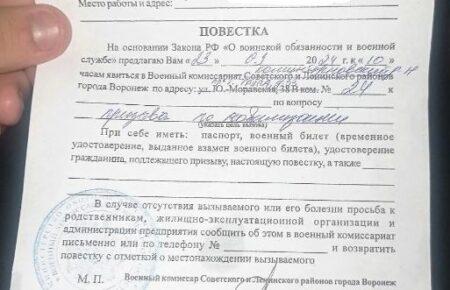 Место работы и адрес:
ПОВЕСТКА
На основании Закона РФ «О воинской обязанности и военной
службе» предлагаю Вам «23» 09 2024 г. к «10»
часам явиться в Военный комиссариат Советского и Ленинского районов
города Воронеж по адресу: ул. Ю.-Моравская, 38 В ком. № 24 к
по вопросу
призыва по мобилизации
(указать цель вызова)
При себе иметь: паспорт, военный билет (временное
удостоверение, выданное взамен военного билета), удостоверение
гражданина, подлежащего призыву, настоящую повестку, а также
В случае отсутствия вызываемого или его болезни просьба к
родственникам, жилищно-эксплуатационной организации и
администрации предприятия сообщить об этом в военный комиссариат
письменно или по телефону № и возвратить
повестку с отметкой о местонахождении вызываемого
М. П. Военный комиссар Советского и Ленинского районов города Воронеж